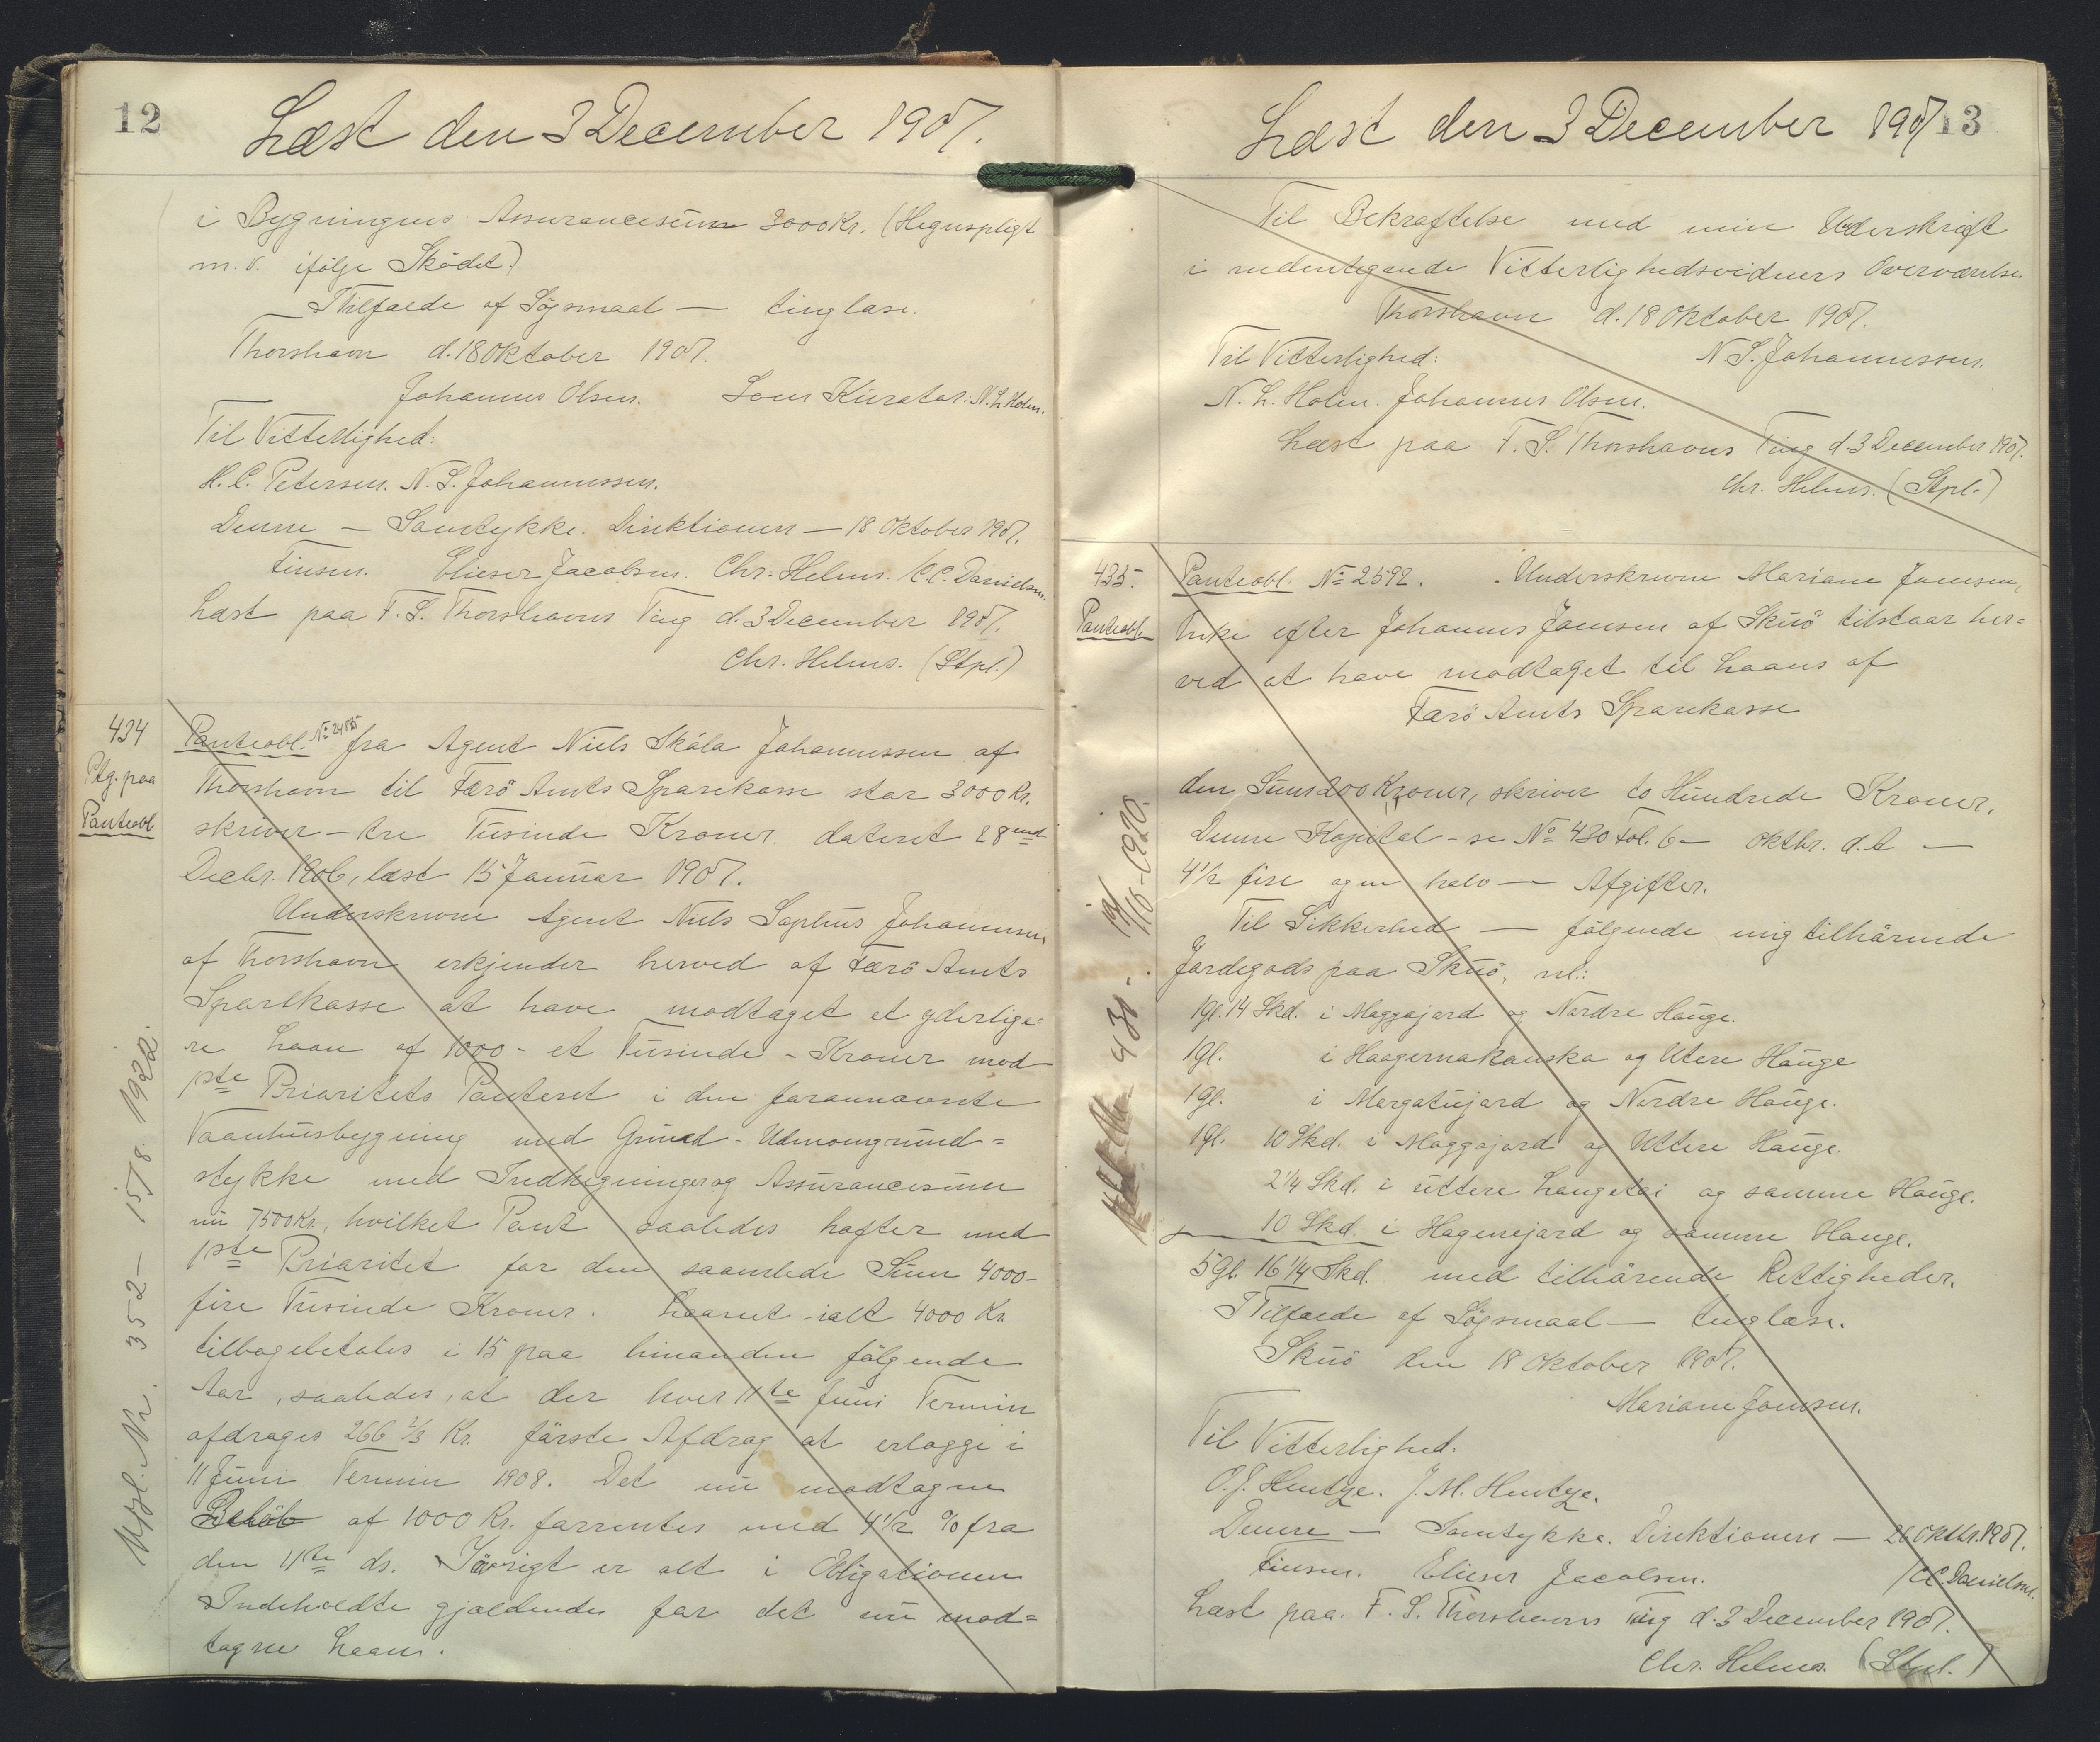 12
Læst den 3 December 1907.
i Bygningens Assurancesum 3000 Kr. (Hegnspligt
m.v. ifølge Skødet)
I Tilfælde af Søgsmaal — tinglæse.
Thorshavn d. 18 Oktober 1907.
Johannes Olsen. Som Kurator: N. L. Holm.
Til Vitterlighed:
H. C. Petersen. N. S. Johannessen.
Denne — Samtykke. Direktionen — 18 Oktober 1907.
Finsen. Elieser Jacobsen. Chr. Helms. /C.C. Danielsen.
Læst paa F. S. Thorshavns Ting d. 3 December 1907.
Chr. Helms. (Stpl.)
434
Ptg. paa
Panteobl
Panteobl. fra Agent Niels Skála Johannessen af
Thorshavn til Færö Amts Sparekasse stor 3000 Kr.
skriver - tre Tusinde Kroner. dateret 28
Decbr. 1906, læst 15 Januar 1907.
Underskrevne Agent Niels Johannessen
af Thorshavn erkjender herved af Færö Amts
Sparekasse at have modtaget et yderlige=
re Laan af 1000 - et Tusinde - Kroner mod
1ste Prioritets Panteret i den forannævnte
Vaanhusbygning med Grund - Udmomgrund=
stykke med Indhegninger og Assurancesum
nu 7500 Kr., hvilket Pant saaledes hæfter med
1ste Prioritet for den saamlede Sum 4000 -
fire Tusinde Kroner. Laanet - ialt 4000 Kr.
tilbagebetales i 15 paa hinanden følgende
Aar, saaledes, at der hver 11te Juni Termin
afdrages 266 2/3 Kr. første Afdrag at erlægge i
11 Juni Termin 1908. Det nu modtagne
Beløb af 1000 Kr. forrentes med 4 1/2 % fra
den 11te ds. Iøvrigt er alt i Obligationen
Indeholdte gjældende for det nu mod=
tagne Laan.
Nr. 352 - 15/8. 1922.
13
Læst den 3 December 1907
Til Bekræftelse med min Underskrift
i medentegende Vitterlighedsvidners Overværelse.
Thorshavn d. 18 Oktober 1907.
Til Vitterlighed: N S. Johannessen.
N. L. Holm. Johannes Olsen.
Læst paa F. S. Thorshavns Ting d. 3 December 1907.
Chr. Helms. (Stpl.)
435.
Panteobl.
Panteobl. No 2592. Underskrevne Mariane Joensen,
Enke efter Johannes Joensen af Skuö tilstaar her=
ved at have modtaget til Laans af
Færö Amts Sparekasse
den Sum 200 Kroner, skriver to Hundrede Kroner.
Denne Kapital - se No 430 Fol. 6 - Oktbr. d. A —
4 1/2 fire og en halv — Afgifter.
Til Sikkerhed — følgende mig tilhørende
Jordegods paa Skuö, nl.:
1 gl. 14 Skd. i Møggajord og Nordre Hauge.
1 gl. i Haagernakanska og Utere Hauge
1 gl. i Margatujord og Nordre Hauge.
1 gl. 10 Skd. i Møggajord og Uttere Hauge.
2 1/4 Skd. i uttere Langetoi og samme Hauge.
10 Skd. i Hagenejard og samme Hauge.
5 gl. 16 1/4 Skd. med tilhørende Rettigheder.
I Tilfælde af Søgsmaal — tinglæse.
Skuö den 18 Oktober 1907.
Mariane Joensen.
Til Vitterlighed:
O. J. Hentze. J. M. Hentze.
Denne — Samtykke. Direktionen — 26 Oktbr. 1907.
Finsen. Elieser Jacobsen. /C.C. Danielsen.
Læst paa. F. S. Thorshavns Ting d. 3 December 1907.
Chr. Helms. (Stpl.)
430 - 1920.